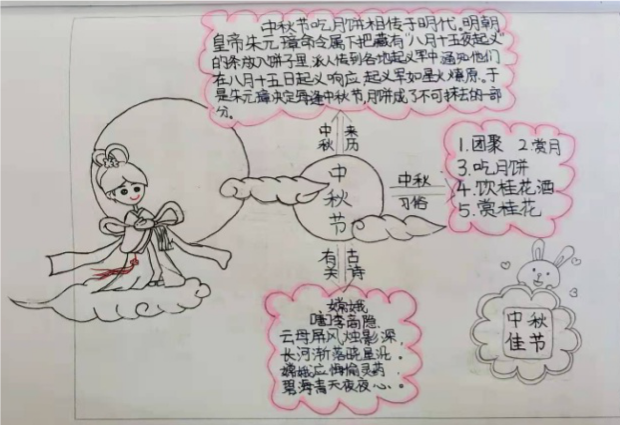 中秋节吃月饼相传于明代。明朝
皇帝朱元璋命令属下把藏有“八月十五夜起义”
的条放入饼子里派人传到各地起义军中通知他们
在八月十五日起义响应起义军如星火燎原。于
是朱元璋决定每逢中秋节,月饼成了不可抹去的一部
分。
中秋 来历
中秋节
中秋
习俗
1.团聚 2赏月
3.吃月饼
4.饮桂花酒
5.赏桂花
有关 古诗
嫦娥
唐李商隐
云母屏风烛影深,
长河渐落晓星沉。
嫦娥应悔偷灵药
碧海青天夜夜心。
中秋
佳节